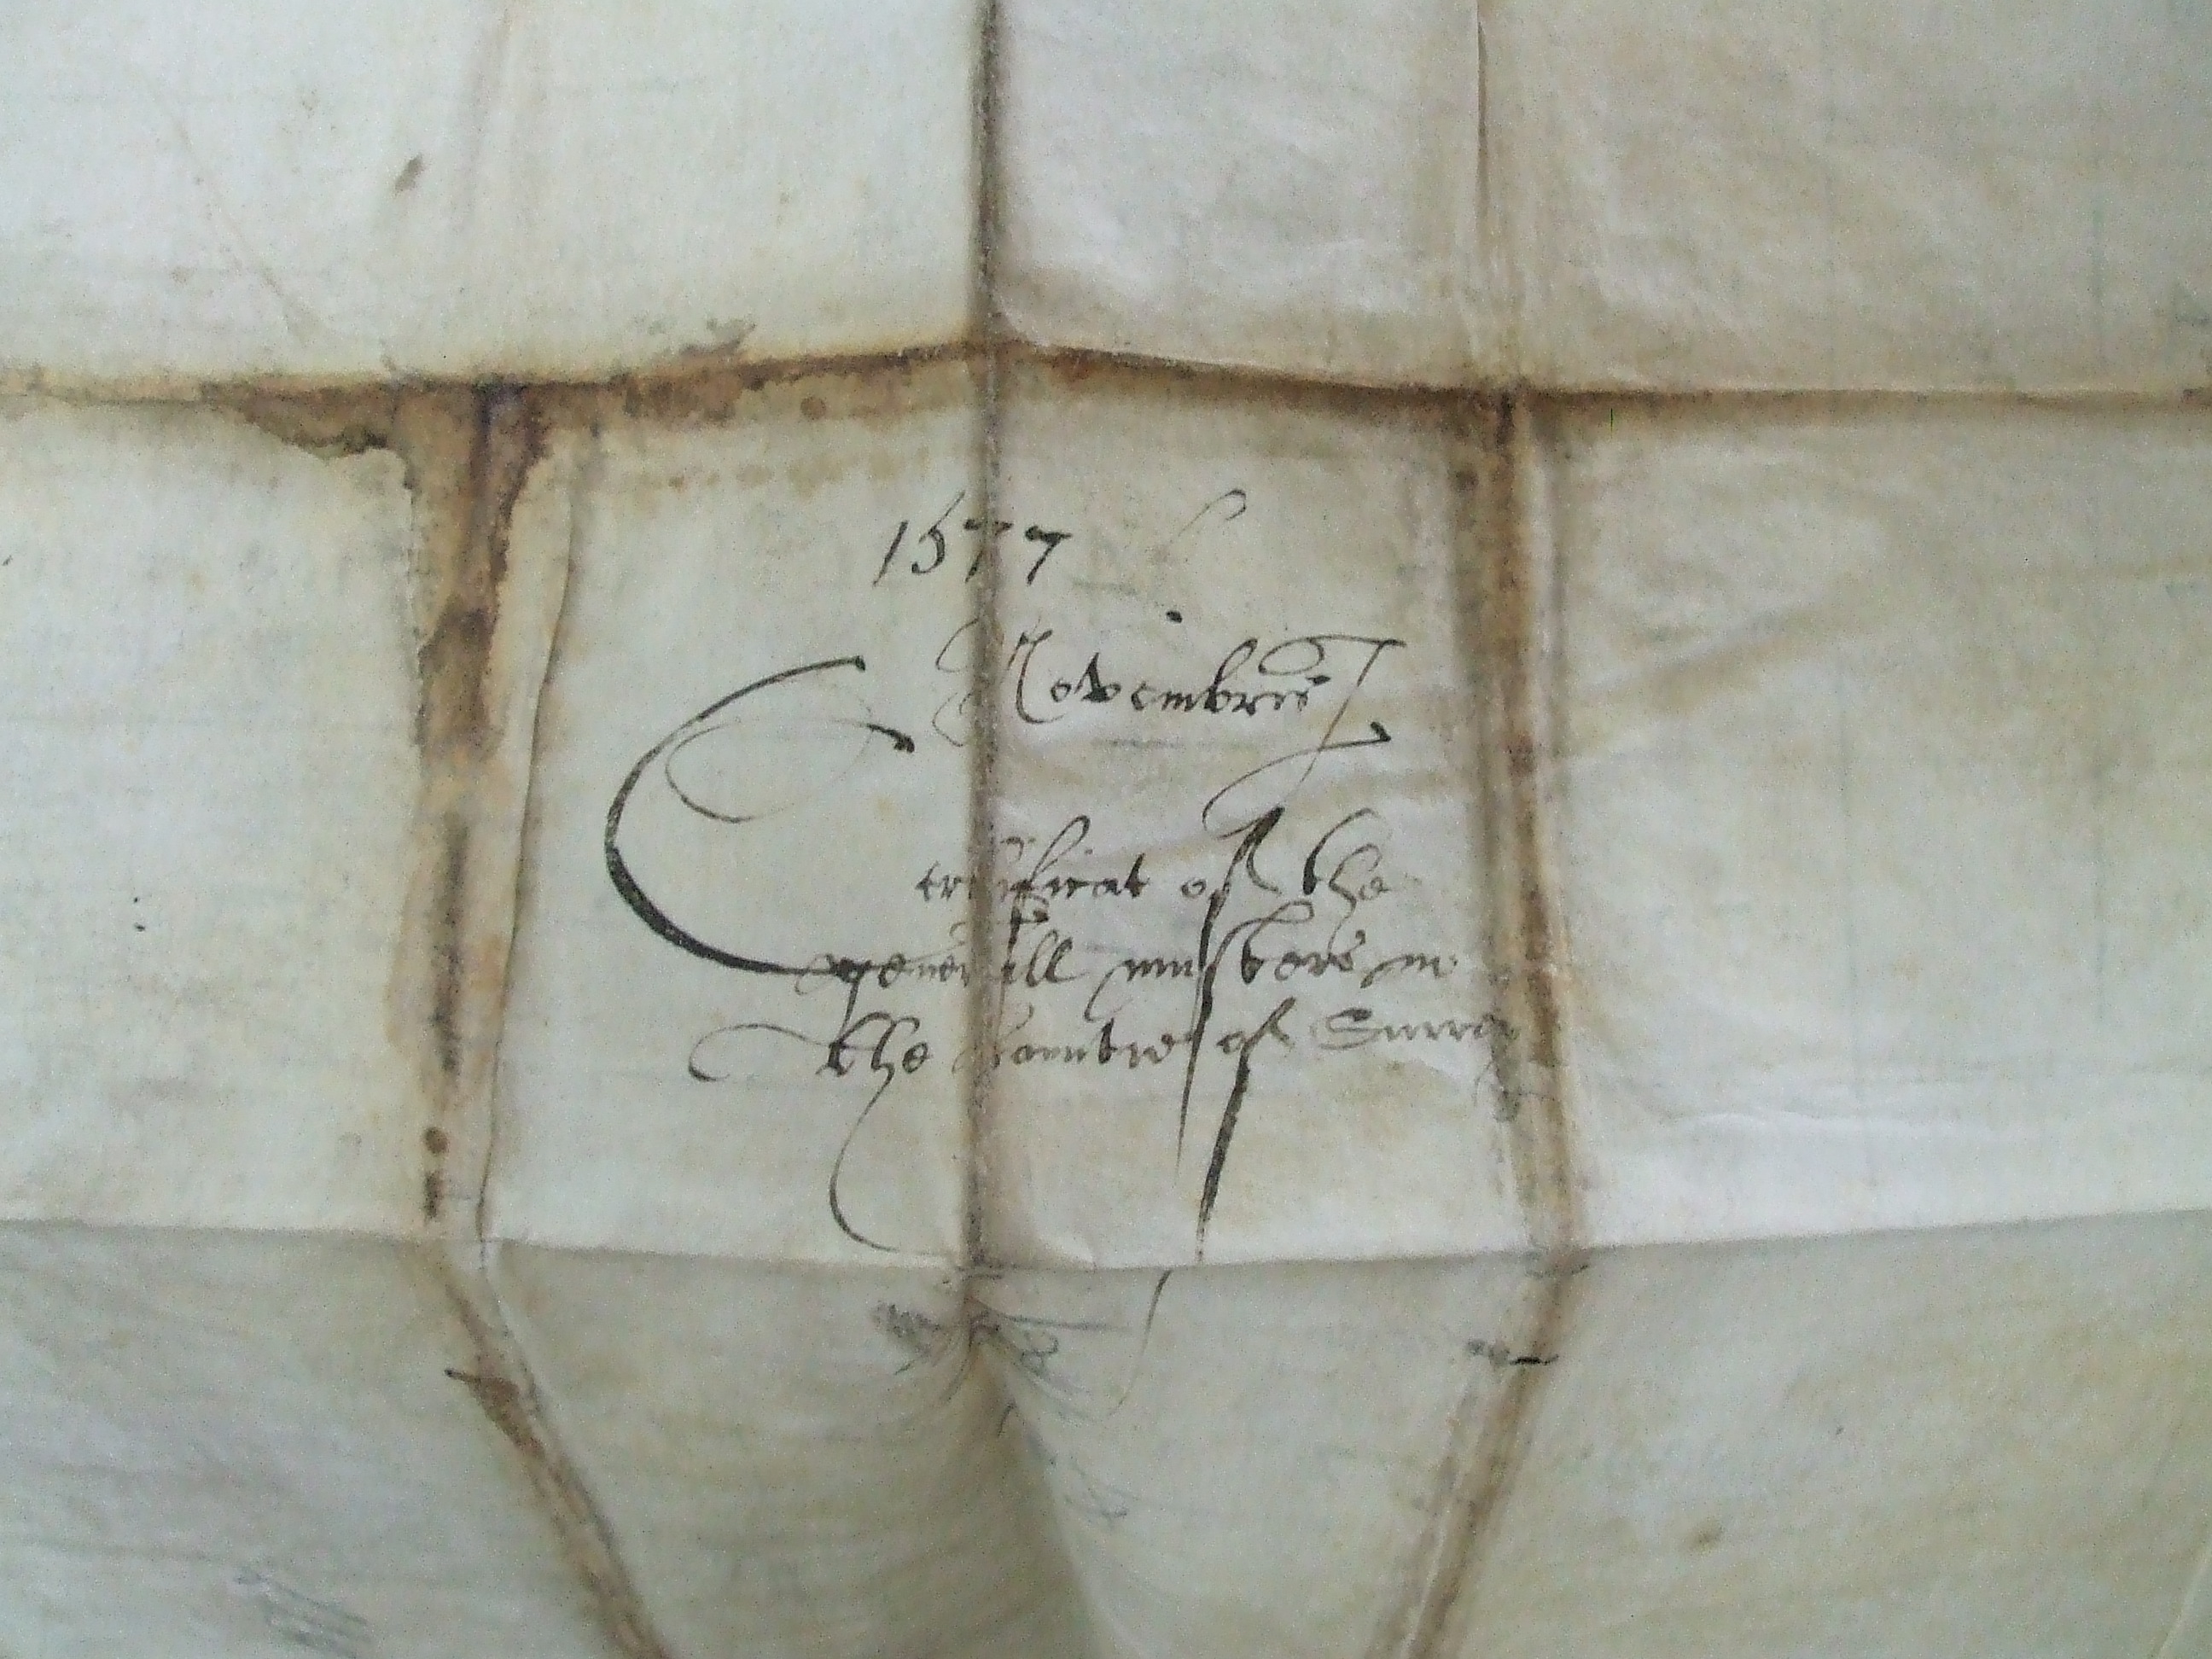 1577
Novembris
Certificat of the
generall musters in
the Countie of Surrey